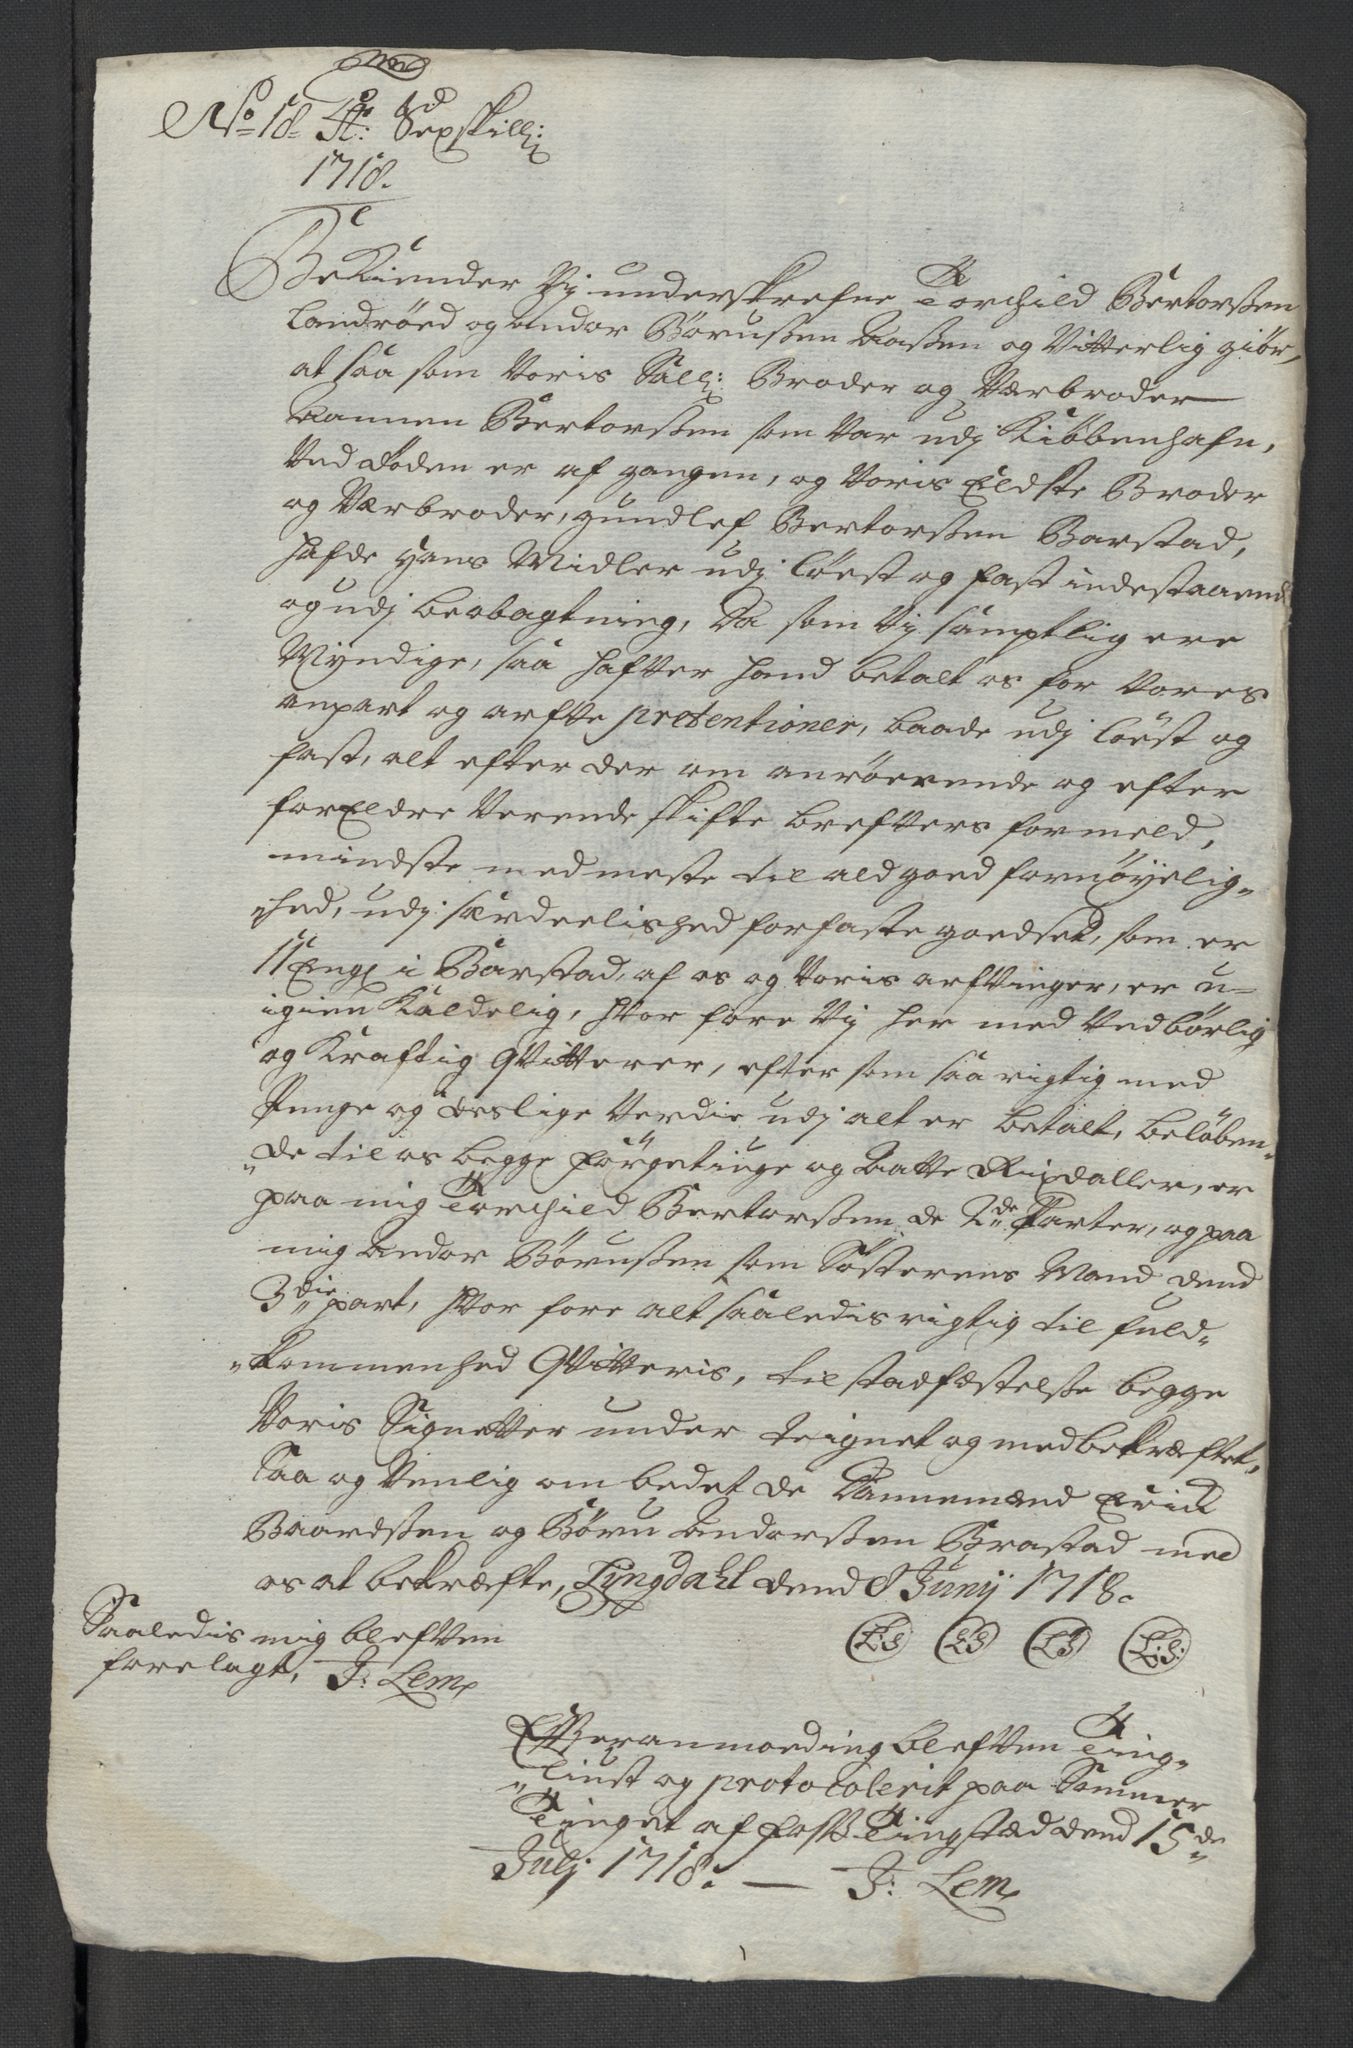 No 18. St: Sexskill:
1718.
Bekiender Vij underskrefne Torchild Bertorssen
Landröed og Andor Börussen Aassen og Vitterlig giör,
at saa som Voris Sall: Broder og Værbroder
Aannen Bertorssen som Var udj Kiöbenhafn,
Ved döden er af gangen, og Voris Eldste Broder
og Værbroder, Gundlef Bertorssen Barstad,
hafde hans Midler udj löest og fast indestaaend
og udj beobagtning, Da som Vij samptlig ere
Myndige, saa hafver hand betalt os for Vores
anpart og arfve pretentioner, baade udj löest og
fast, alt efter der om anröerende og efter
forEldre Verende skifte brefvers formeld,
mindste med meste til ald goed fornöyelig-
-hed, udj særdeelished for faste goedset, som er
11 Eng: i Barstad, af os og Voris arfvinger, er u-
igien Kaldelig, hvor fore Vij her med Vedbörlig
og Kraftig qvitterer, efter som saa rigtig med
Penge og deslige Verdie udj alt er betalt, belöben-
-de til os begge förgetiuge og Aatte Rixdaller, er
paa mig Torchild Bertorssen de 2de Parter, og paa
mig Andor Börussen som Sösterens Mand dend
3die part, hvor fore alt saaledis rigtig til fuld-
-kommenhed qvitteris, til stadfæstelsse begge
Voris Signetter under teignet og med bekræftet,
Saa og Venlig om bedet de Dannemænd Erick
Baardssen og Böru Andorssen Brastad med
os at bekræfte, Lyngdahl dend 8 Junij 1718.
L:S L:S L:S L:S:
Saaledis mig blefven
forelagt, J: Lem
Efter anmoeding blefven Ting-
-liust og protocolerit paa Sommer
Tinget af Foss Tingstæd dend 15de
Julj 1718. — J: Lem